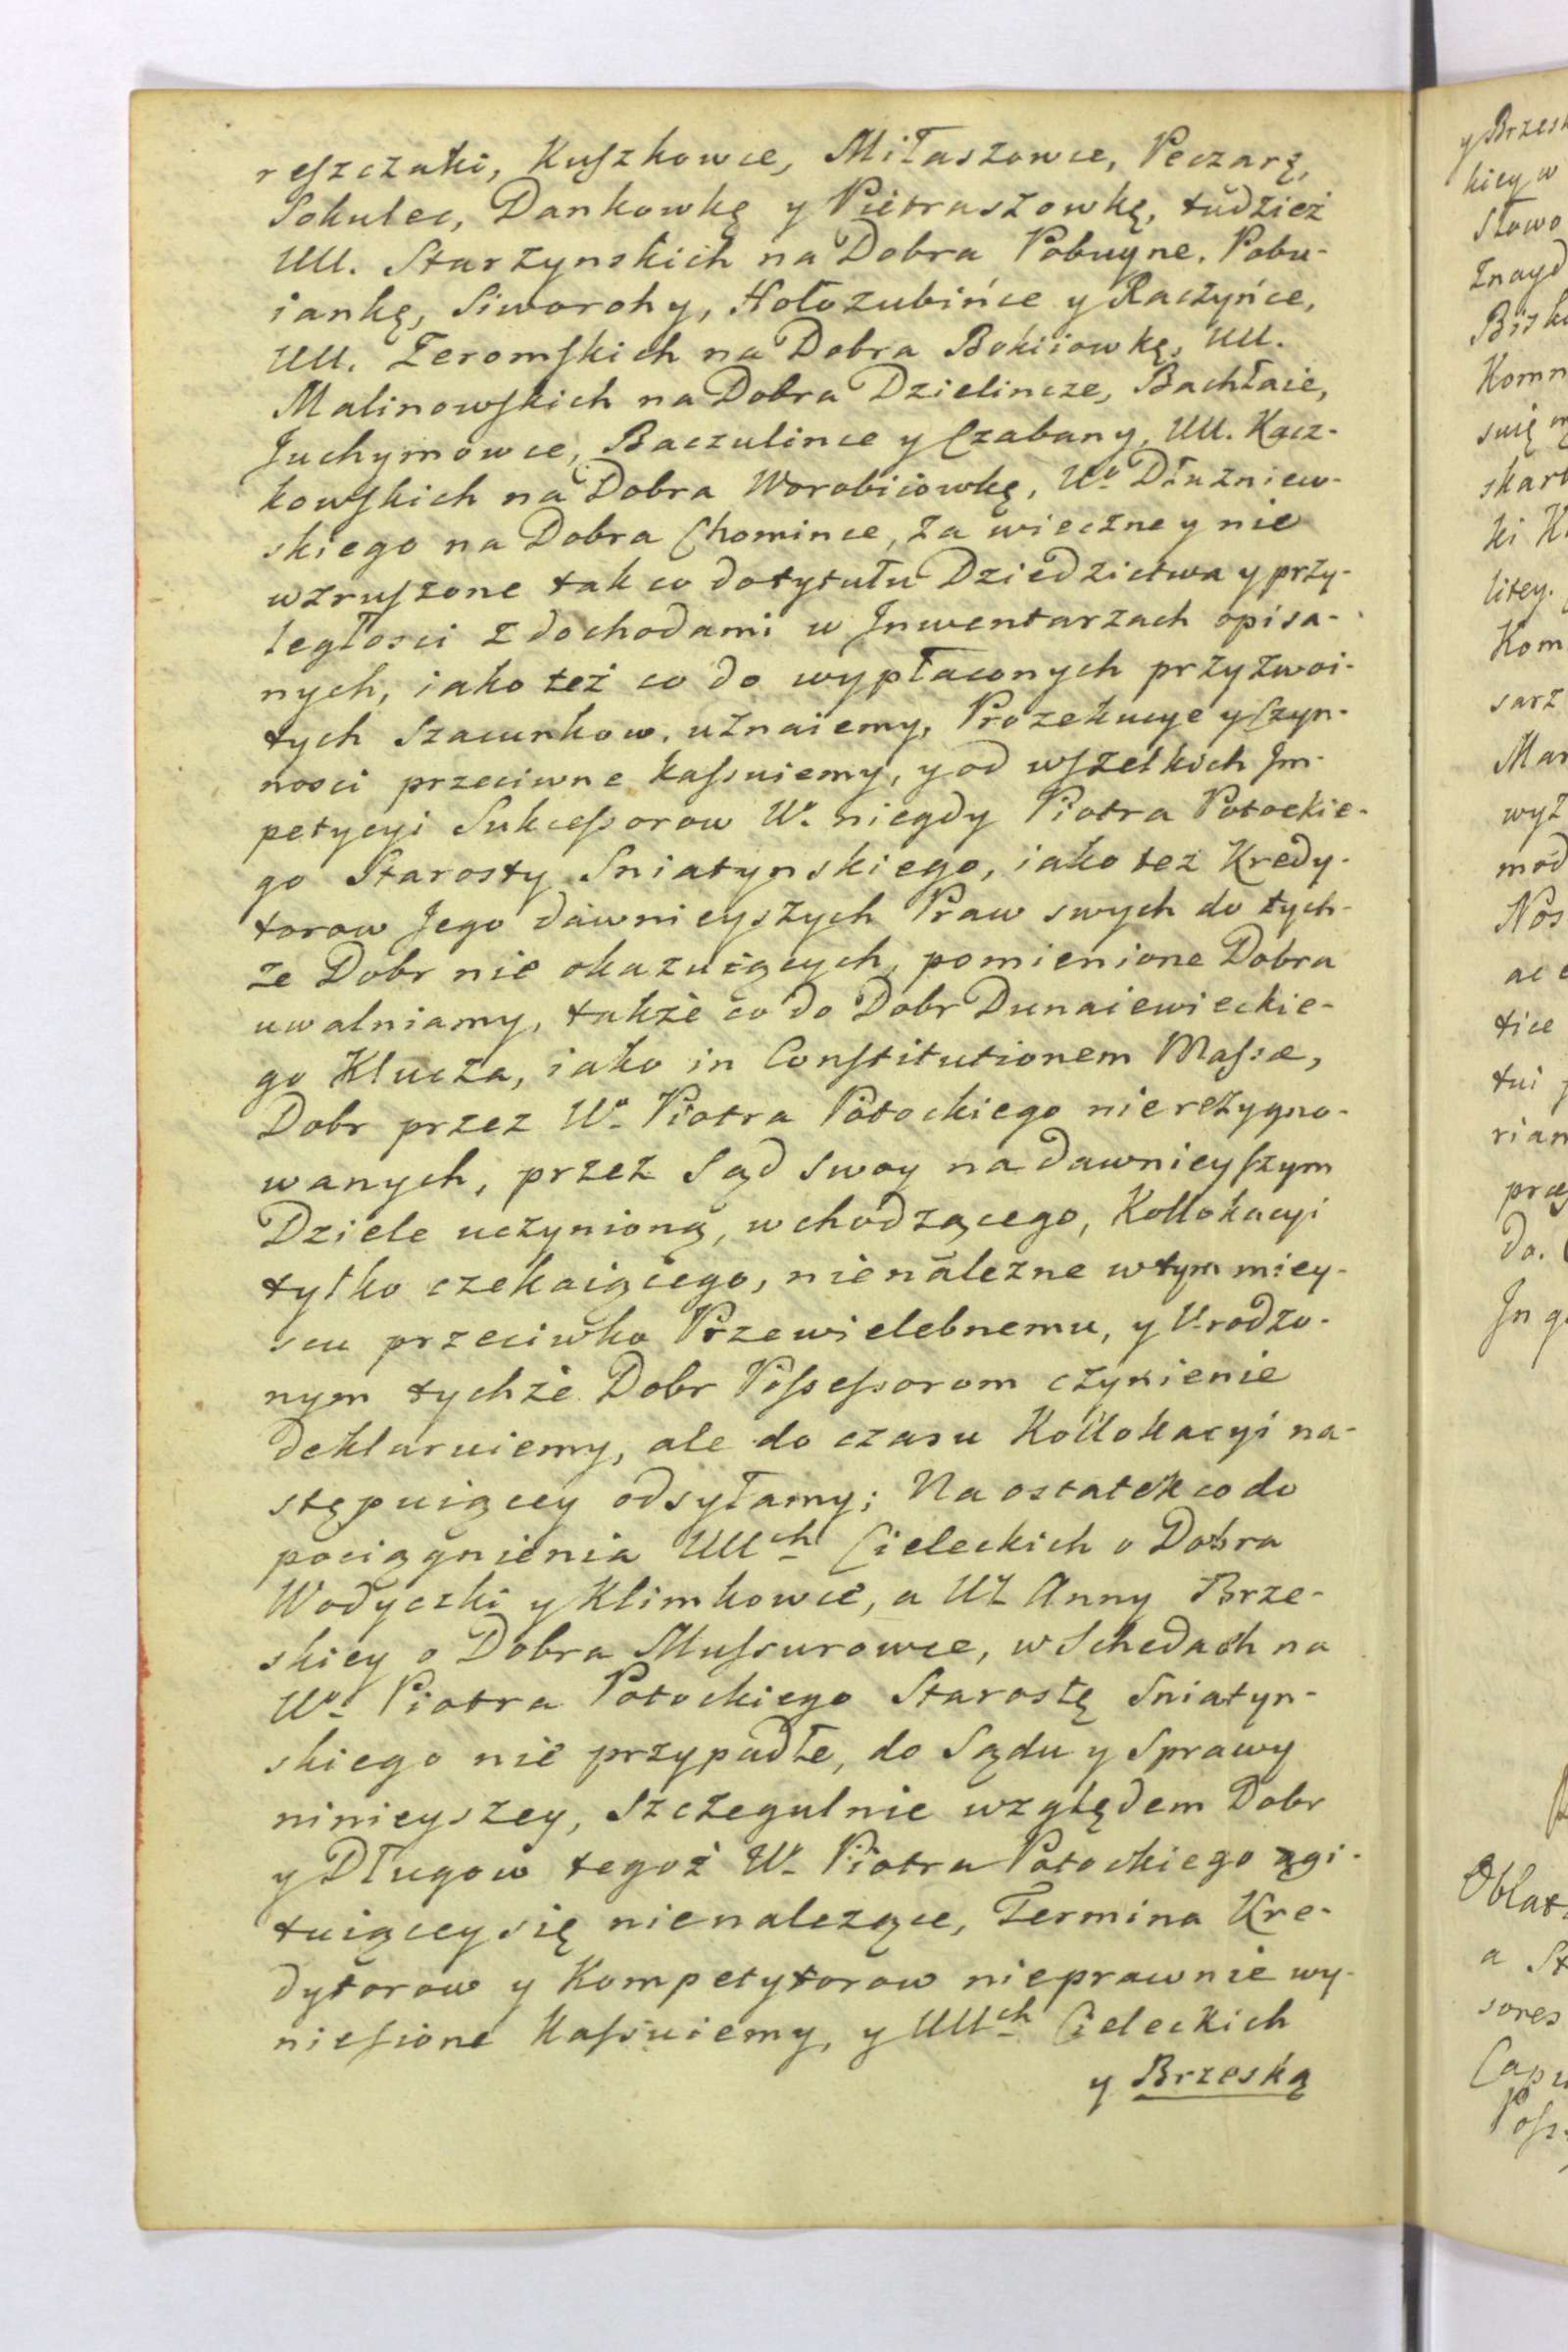 reszczaki, Kuszkowce, Miłaszowce, Peczarę,
Sokulec, Dankowkę y Pietraszowkę, tudzież
UU. Starzynskich na Dobra Pobuyne, Pobu-
iankę, Siworohy, Hołozubińce y Raczyńce,
UU. Zeromskich na Dobra Bokiiowkę, UU.
Malinowskich na Dobra Dzielincze, Bachłaie,
Juchymowce, Baczulince y Czabany, UU. Kacz-
kowskich na Dobra Worobiiowkę, Uo Dłużniew-
skiego na Dobra Chomince, za wieczne y nie
wzruszone tak co do tytułu Dziedzictwa y przy-
ległosci z dochodami w Inwentarzach opisa-
nych, iako też co do wypłaconych przyzwoi-
tych szacunkow, uznaiemy, Prozekucye y Czyn-
nosci przeciwne kassuiemy, y od wszelkich Im-
petycyi Sukcessorow Wo niegdy Piotra Potockie-
go Starosty Sniatynskiego, iako tez Kredy-
torow Jego dawnieyszych Praw swych do tych-
że Dobr nie okazuiących, pomienione Dobra
uwalniamy, także co do Dobr Dunaiewieckie-
go Klucza, iako in Constitutionem Massæ,
Dobr przez Wo Piotra Potockiego nierezygno-
wanych, przez Sąd swoy na dawnieyszym
Dziele uczynioną, wchodzącego, Kollokacyi
tylko czekaiącego, nienalezne w tym miey-
scu przeciwko Przewielebnemu, y Urodzo-
nym tychże Dobr Possessorom czynienie
deklaruiemy, ale do czasu Kollokacyi na-
stępuiącey odsyłamy; Na ostatek co do
pociągnienia UUch Cieleckich o Dobra
Wodyczki y Klimkowce, a UZ Anny Brze-
skiey o Dobra Mussurowce, w Schedach na
Wo Piotra Potockiego Starostę Sniatyn-
skiego nie przypadłe, do Sądu y Sprawy
ninieyszey, szczegulnie względem Dobr
y Długow tegoż Wo Piotra Potockiego agi-
tuiącey się nienalezące, Termina Kre-
dytorow y Kompetytorow nieprawnie wy-
niesione kassuiemy, y UUch Cieleckich
y Brzeską
y Brzesk
kiey w
Słowo
znayd
skart
ki K
litey.
Kom
sarz
Mar
wyz
mod
Nos
ac e
tice
tui
rian
præ
do.
In g
Oblat
a St
sores
Capu
Poss